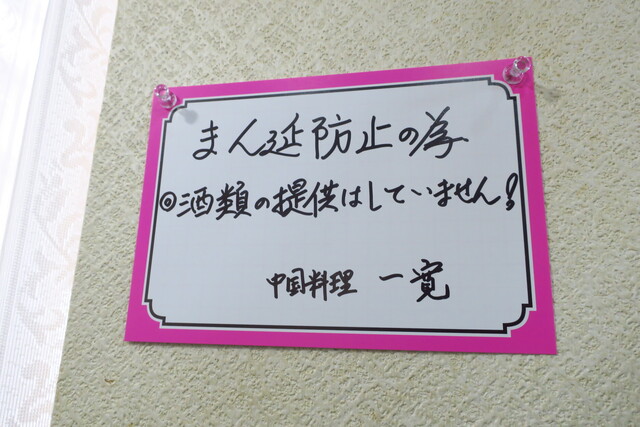 まん延防止の為
◎酒類の提供はしていません!
中国料理 一寛